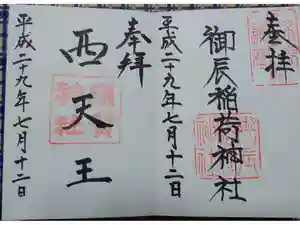 奉拝
御辰稲荷神社
平成二十九年七月十二日
奉拝
西天王
平成二十九年七月十二日